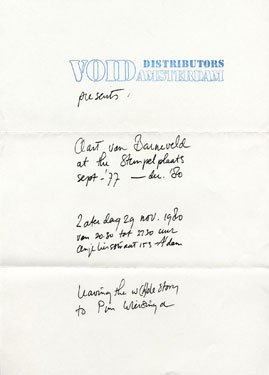 VOID DISTRIBUTORS
AMSTERDAM
presents:
Aart van Barneveld
at the Stempelplaats
sept-'77 — dec. '80
Zaterdag 29 nov. 1980
van 20.30 tot 22.30 uur
A'dam
leaving the w(h)ole story
to Pim